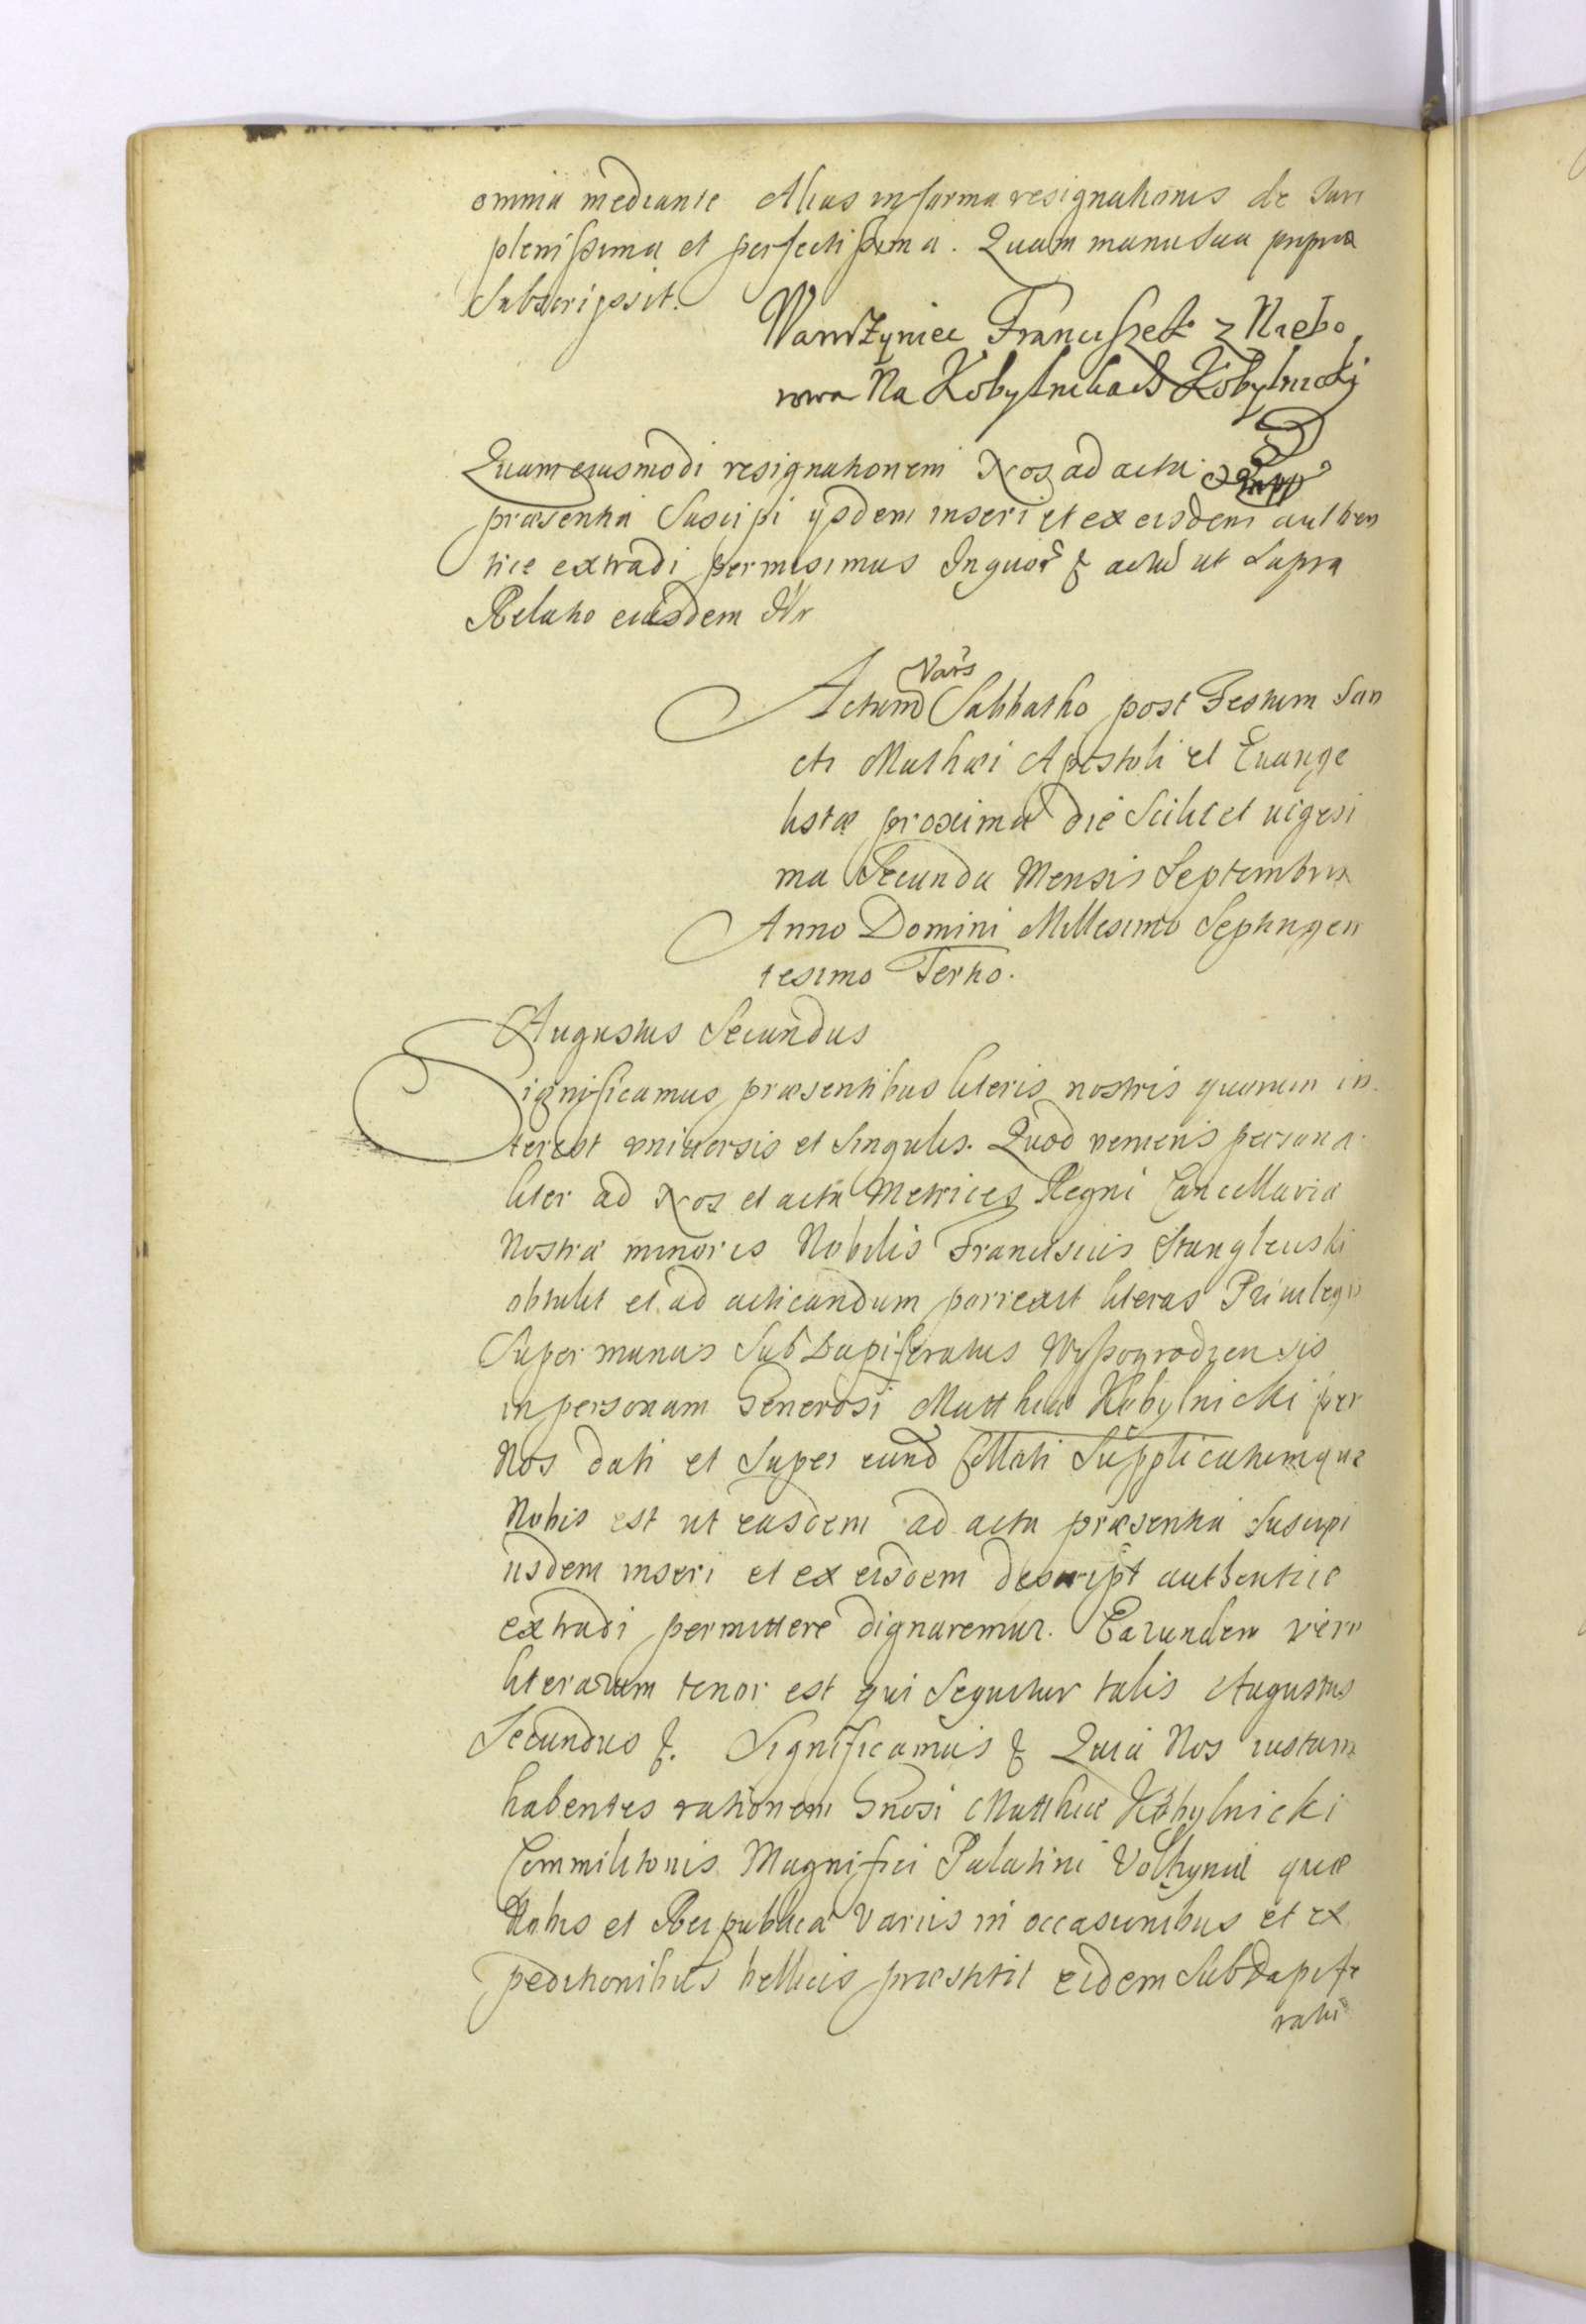 omnia mediante Alias in forma resignationis de Juri
plenissima et perfectissima. Quam manu sua propria
Subscripsit.
Wawrzyniec Franciszek z Niebo,
rowa Na Kobylnikach Kobylnicki
Quam eiusmodi resignationem Nos ad acta
præsentia Suscipi ysdem inseri et ex eisdem authen
tice extradi permisimus In quor & actũ ut Supra
Relatio eiusdem Illr
Vars
Actum Sabbatho post Festum San
cti Mathæi Apostoli et Euange
listæ proximo die Scilicet uigesi
ma Secunda Mensis Septembris
Anno Domini Millesimo Septingen
tesimo Tertio.
Augustus Secundus
Significamus præsentibus literis nostris quorum in
terest vniuersis et Singulis. Quod veniens persona
liter ad Nos et acta Metrices Regni Cancellariæ
Nostræ minoris Nobilis Franciscus Stanglewski
obtulit et ad acticandum porrexit literas Priuilegii
Super munus SubDapiferatus Wyszogrodzensis
in personam Generosi Matthiæ Kobylnicki per
Nos dati et Super eund Collati Supplicatumque
Nobis est ut easdem ad acta præsentia Suscipi
iisdem inseri et ex eisdem descript authentice
extradi permittere dignaremur. Earundem vero
literarum tenor est qui Sequitur talis Augustus
Secundus &. Significamus & Quia Nos iustam
habentes rationem Gnosi Matthiæ Kobylnicki
Commilitonis Magnifici Palatini Volhyniæ quæ
Nobis et Reipublicæ Variis in occasionibus et ex
peditionibus bellicis præstitit eidem SubDapife
ratũ